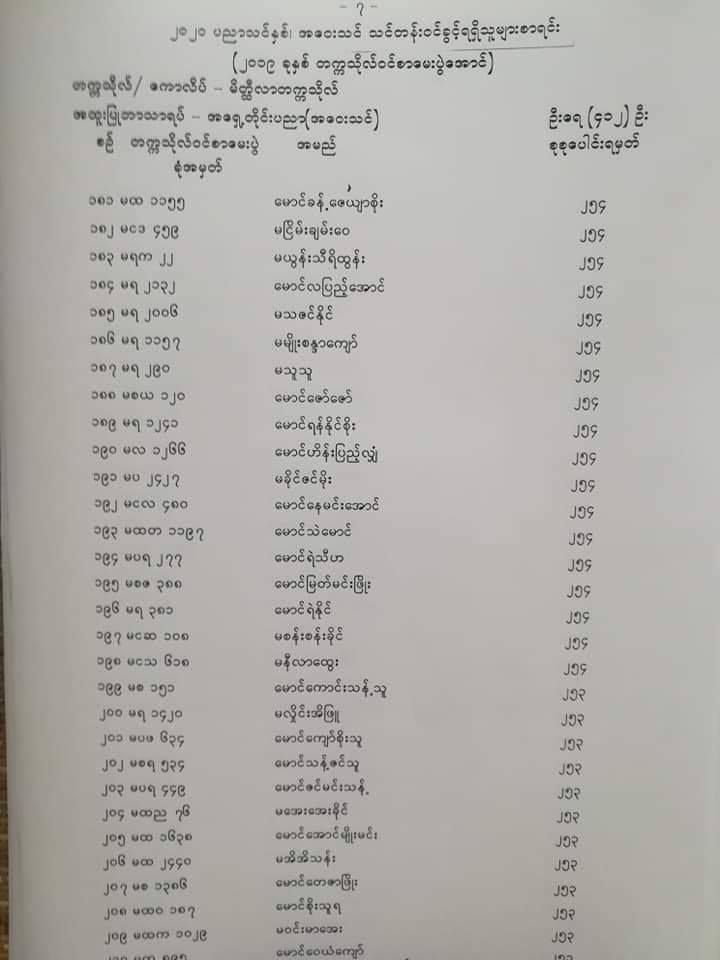 - ၇ -
၂၀၂၀ ပညာသင်နှစ်၊ အဝေးသင် သင်တန်းဝင်ခွင့်ရရှိသူများစာရင်း
(၂၀၁၉ ခုနှစ် တက္ကသိုလ်ဝင်စာမေးပွဲအောင်)
တက္ကသိုလ်/ ကောလိပ် - မိတ္ထီလာတက္ကသိုလ်
အထူးပြုဘာသာရပ် - အရှေ့တိုင်းပညာ(အဝေးသင်) ဦးရေ (၄၁၂) ဦး
စဉ် တက္ကသိုလ်ဝင်စာမေးပွဲ အမည် စုစုပေါင်းရမှတ်
ခုံအမှတ်
၁၈၁ မထ ၁၁၅၅ မောင်ခန့်ဇေယျာစိုး ၂၅၄
၁၈၂ မငဒ ၄၅၉ မငြိမ်းချမ်းဝေ ၂၅၄
၁၈၃ မရက ၂၂ မယွန်းသီရိထွန်း ၂၅၄
၁၈၄ မရ ၂၁၃၂ မောင်လပြည့်အောင် ၂၅၄
၁၈၅ မရ ၂၀၀၆ မသဇင်နိုင် ၂၅၄
၁၈၆ မရ ၁၁၅၇ မမျိုးစန္ဒာကျော် ၂၅၄
၁၈၇ မရ ၂၉၀ မသူသူ ၂၅၄
၁၈၈ မစယ ၁၂၀ မောင်ဇော်ဇော် ၂၅၄
၁၈၉ မရ ၁၂၄၁ မောင်ရန်နိုင်စိုး ၂၅၄
၁၉၀ မလ ၁၂၆၆ မောင်ဟိန်းပြည့်လျှံ ၂၅၄
၁၉၁ မပ ၂၄၂၇ မခိုင်ဇင်မိုး ၂၅၄
၁၉၂ မငလ ၄၈၀ မောင်နေမင်းအောင် ၂၅၄
၁၉၃ မထတ ၁၁၉၇ မောင်သဲမောင် ၂၅၄
၁၉၄ မပရ ၂၇၇ မောင်ရဲသီဟ ၂၅၄
၁၉၅ မစဇ ၃၈၈ မောင်မြတ်မင်းဖြိုး ၂၅၄
၁၉၆ မရ ၃၈၁ မောင်ရဲနိုင် ၂၅၄
၁၉၇ မငဆ ၁၀၈ မစန်းစန်းခိုင် ၂၅၄
၁၉၈ မငသ ၆၁၈ မနီလာထွေး ၂၅၄
၁၉၉ မစ ၁၅၁ မောင်ကောင်းသန့်သူ ၂၅၃
၂၀၀ မရ ၁၄၂၀ မလှိုင်းအိဖြူ ၂၅၃
၂၀၁ မပဖ ၆၃၄ မောင်ကျော်စိုးသူ ၂၅၃
၂၀၂ မစရ ၅၃၄ မောင်သန့်ဇင်သူ ၂၅၃
၂၀၃ မပရ ၄၄၉ မောင်ဇင်မင်းသန့် ၂၅၃
၂၀၄ မထည ၇၆ မအေးအေးခိုင် ၂၅၃
၂၀၅ မထ ၁၆၃၈ မောင်အောင်မျိုးမင်း ၂၅၃
၂၀၆ မထ ၂၄၄၀ မအိအိသန်း ၂၅၃
၂၀၇ မစ ၁၃၈၆ မောင်တေဇာဖြိုး ၂၅၃
၂၀၈ မထဝ ၁၈၇ မောင်စိုးသူရ ၂၅၃
၂၀၉ မထက ၁၀၂၉ မဝင်းမာအေး ၂၅၃
မောင်ဝေယံကျော် ၂၅၃